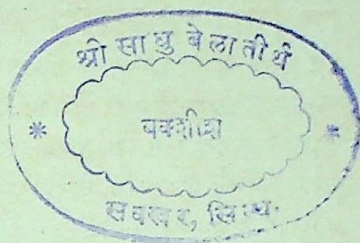 श्री साधु बेला तीर्थ
बक्शीश
सक्खर, सिन्ध.